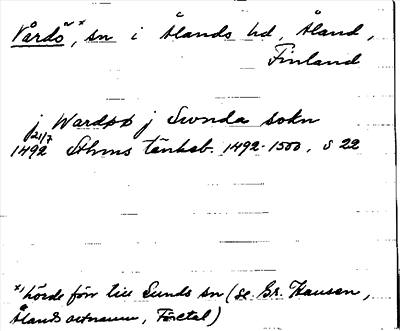 Vårdö*, sn i Ålands hd, Åland,
Finland
j Wardøø j Swnda sokn
1492 21/7 Sthms tänkeb. 1492-1500, s 22
*/ hörde förr till Sunds sn (se Gr. Hausen,
Ålands ortnamn, Företal)